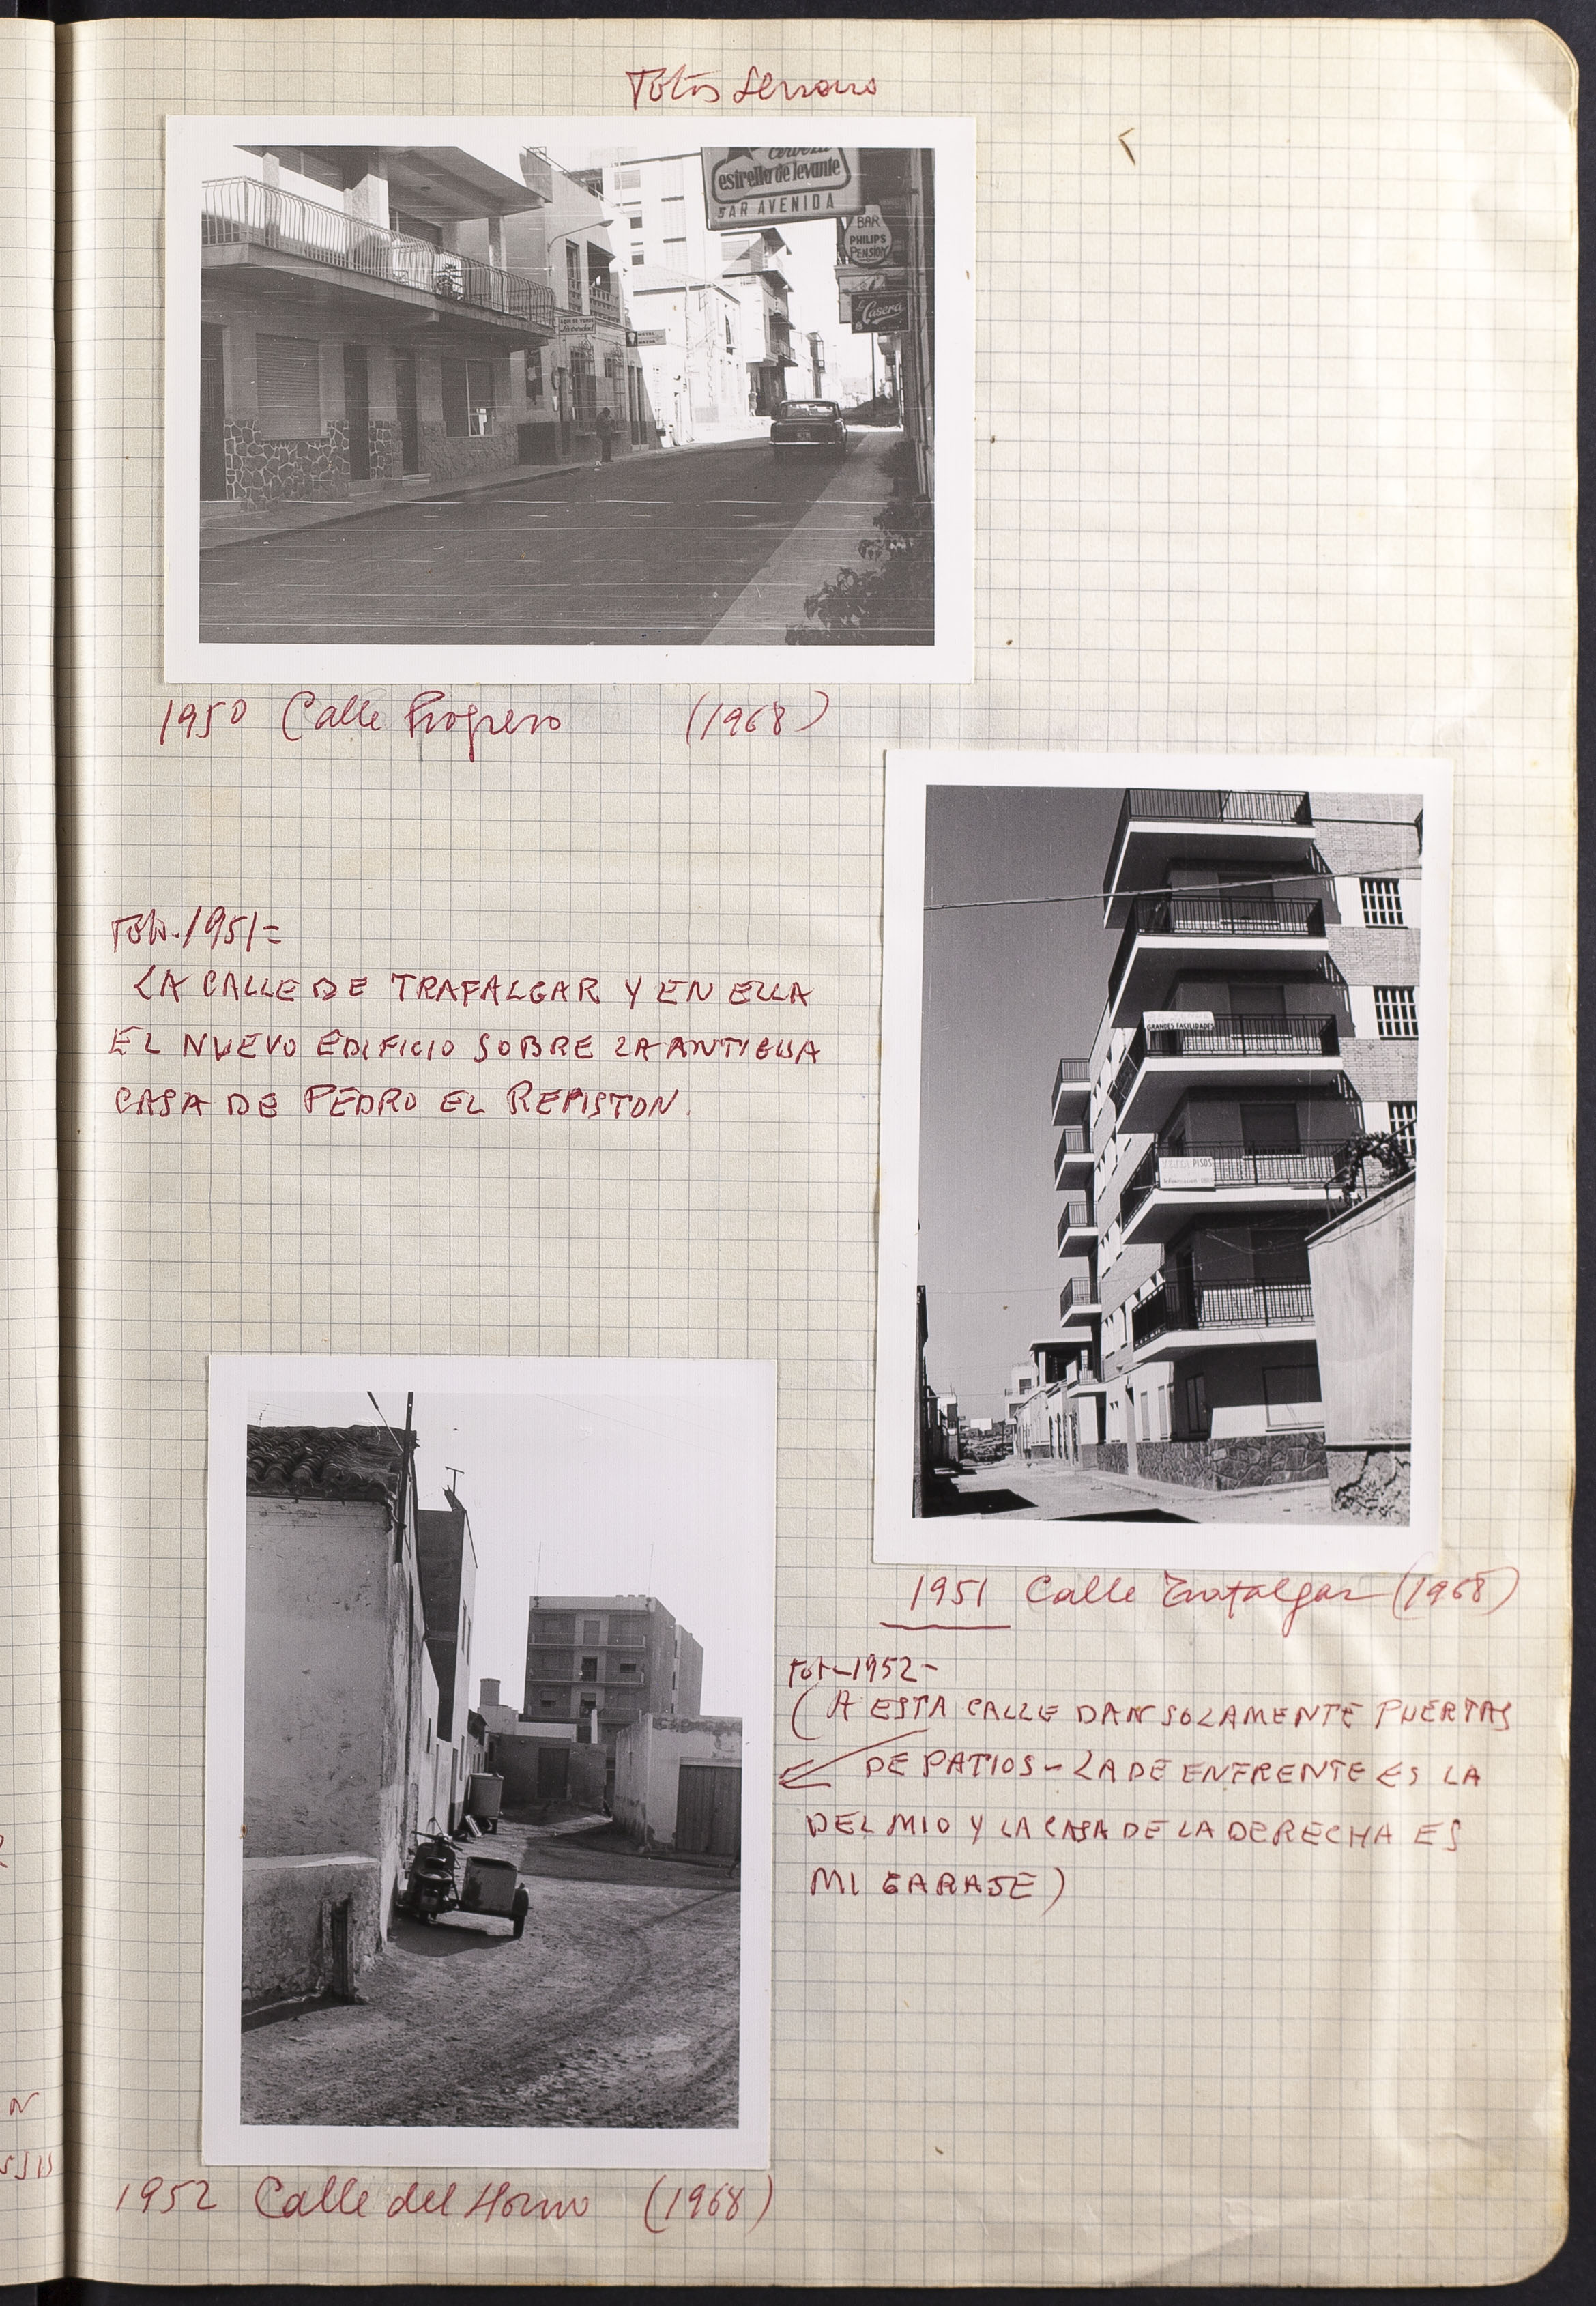 Fotos Serrano
Cerveza
estrella de levante
BAR AVENIDA
BAR
PHILIPS
PENSION
La Casera
AQUI SE VENDE
La Verdad
1950 Calle Progreso (1968)
Foto. 1951=
LA CALLE DE TRAFALGAR Y EN ELLA
EL NUEVO EDIFICIO SOBRE LA ANTIGUA
CASA DE PEDRO EL REPISTON.
GRANDES FACILIDADES
PISOS
1951 Calle Trafalgar (1968)
Fot-1952-
(A ESTA CALLE DAN SOLAMENTE PUERTAS
DE PATIOS - LA DE ENFRENTE ES LA
DEL MIO Y LA CASA DE LA DERECHA ES
MI GARAJE)
1952 Calle del Horno (1968)